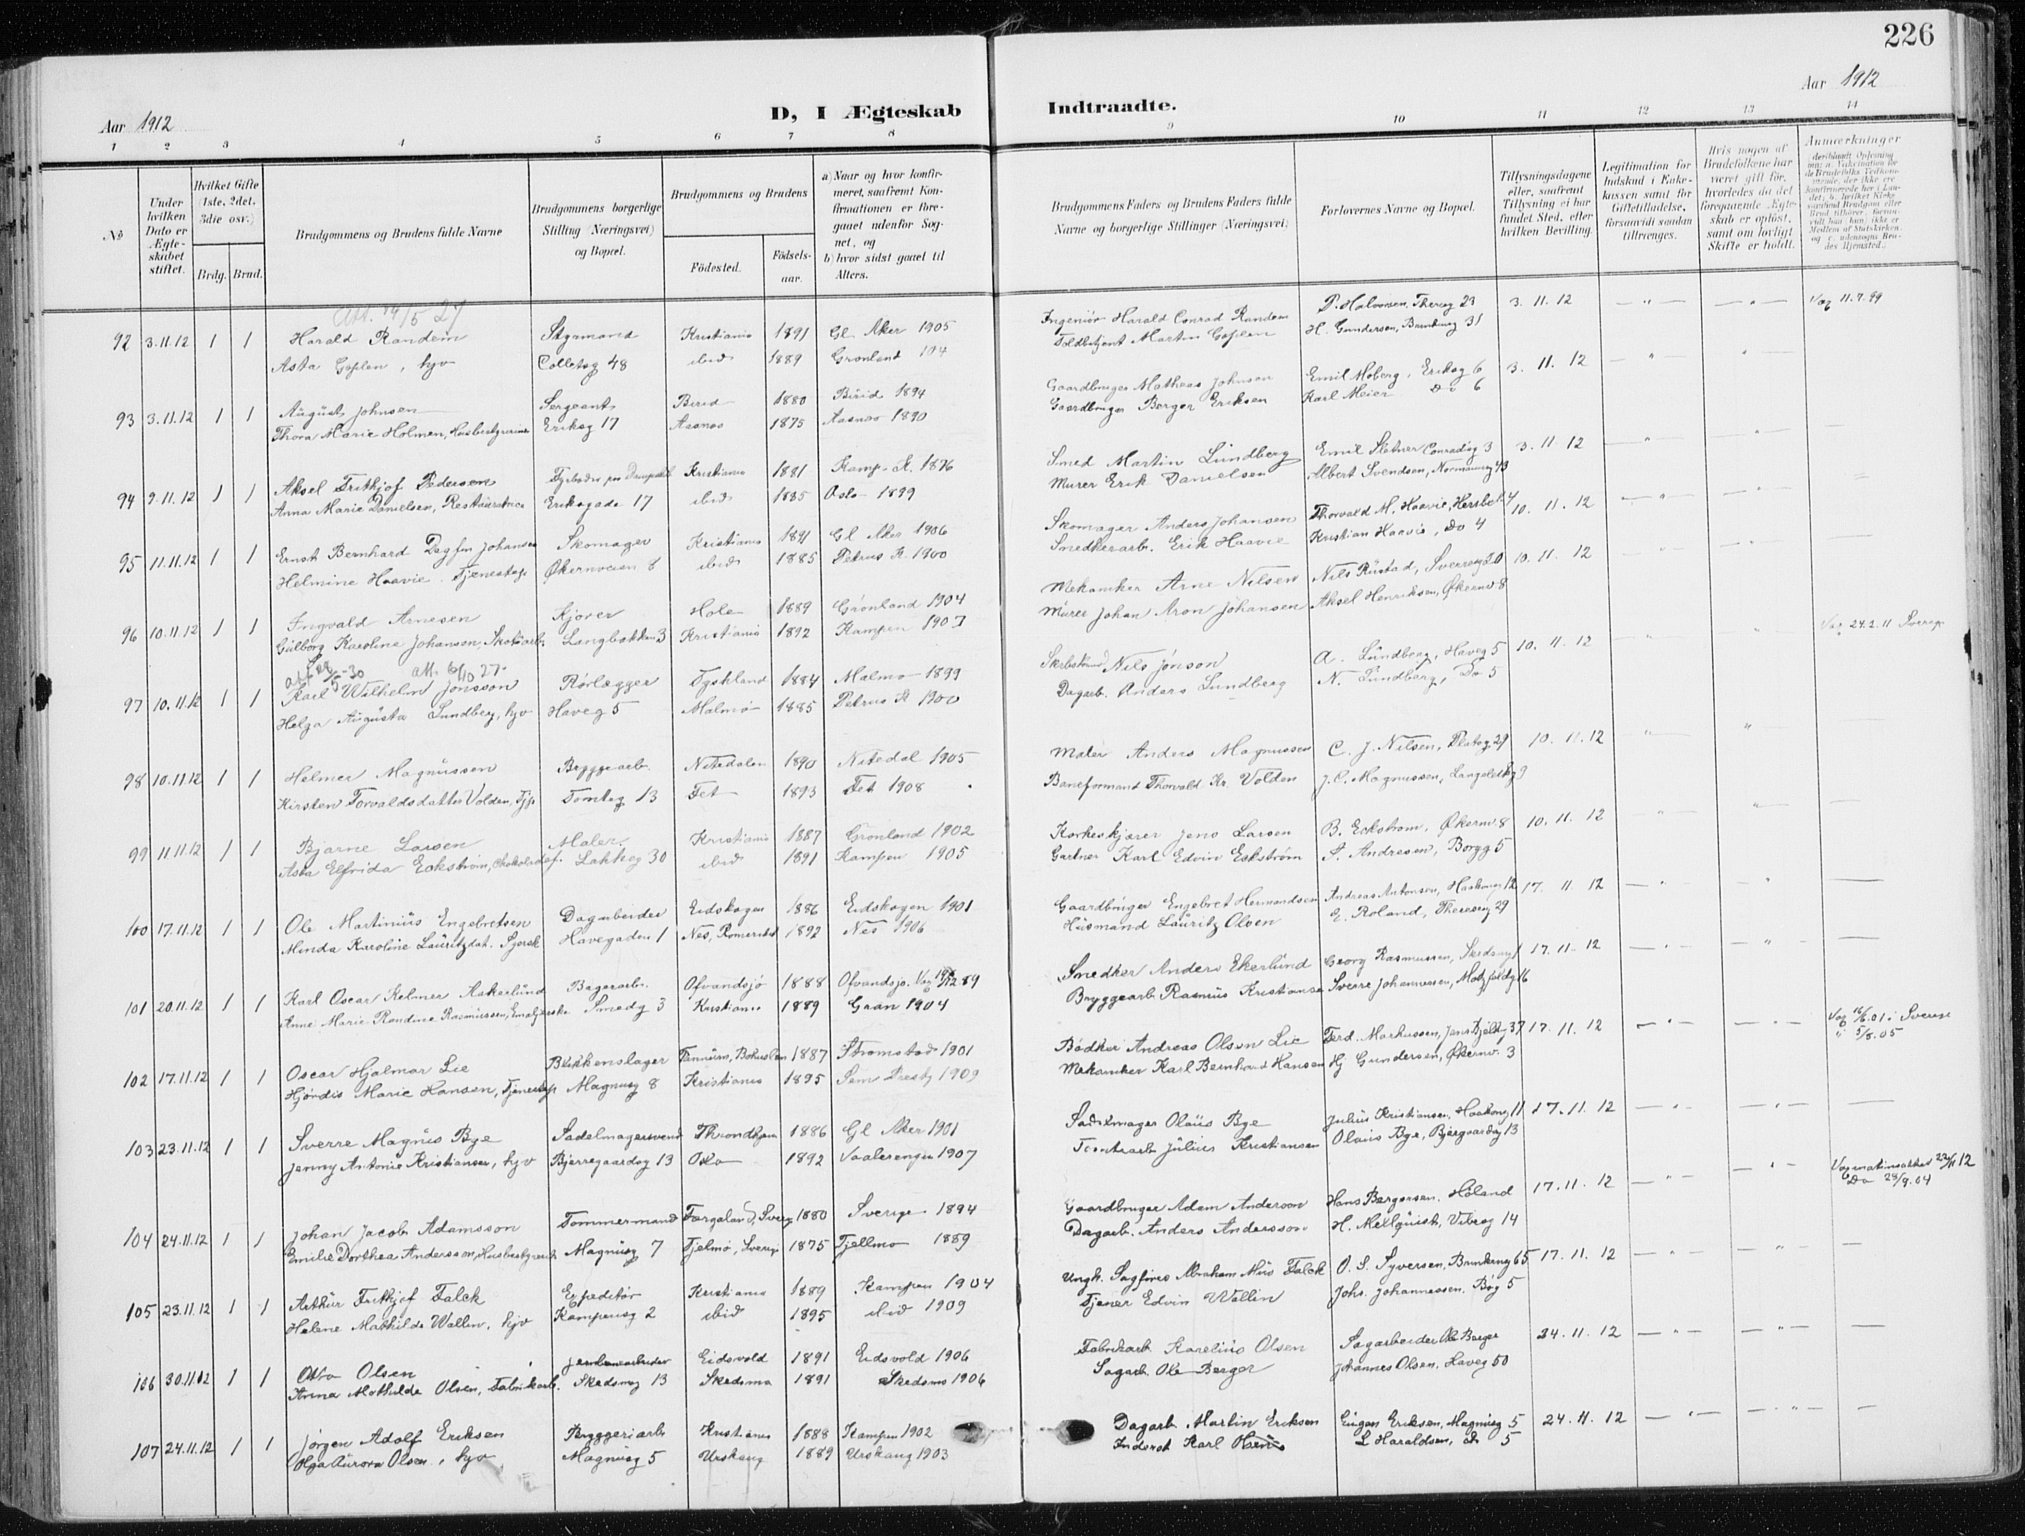 226
Aar 1912
D, I Ægteskab
Indtraadte.
Aar 1912
1 2 3 4 5 6 7 8 9 10 11 12 13 14
No
Under hvilken Dato er Ægteskabet stiftet.
Hvilket Gifte (1ste, 2det, 3die osv.)
Brdg. Brud.
Brudgommens og Brudens fulde Navne
Brudgommens borgerlige Stilling (Næringsvei) og Bopæl.
Brudgommens og Brudens
Födested.
Födselsaar.
a) Naar og hvor konfirmeret, saafremt Konfirmationen er foregaaet udenfor Sognet, og
b) hvor sidst gaaet til Alters.
Brudgommens Faders og Brudens Faders fulde Navne og borgerlige Stillinger (Næringsvei)
Forlovernes Navne og Bopæl.
Tillysningsdagene eller, saafremt Tillysning ei har fundet Sted, efter hvilken Bevilling.
Legitimation for Indskud i Enkekassen samt for Giftetilladelse, forsaavidt saadan tiltrænges.
Hvis nogen af Brudefolkene har været gift för, hvorledes da det foregaaende Ægteskab er oplöst, samt om lovligt Skifte er holdt.
Anmærkninger
92 3.11.12 1 1 Harald Randem Kristiania 1891 Gl. Aker 1905 Ingeniør Harald Conrad Randem P. Halvorsen, Thereseg 23 3.11.12 Vac 11.7.99
Asta Goplen, hjv Colletsg 48 ibid 1889 Grønland Toldbetjent Martin Goplen H. Gundersen, 31
93 3.11.12 1 1 August Johnsen Sergeant Birid 1880 Birid 1894 Gaardbruger Matheas Johnsen Emil Moberg, Eriksg 6 3.11.12
Thora Marie Holmen, Husbestyrerinne Eriksg 17 Aasnes 1875 Aasnes 1890 Gaardbruger Berger Eriksen Karl Meier Do 6
94 9.11.12 1 1 Aksel Frithjof Pedersen Kristiania 1881 Kamp. K. 1896 Smed Martin Lundberg Emil Sletner Conradsg 3 3.11.12
Anna Marie Danielsen, Eriksgade 17 ibid 1885 Oslo 1899 Murer Erik Danielsen Albert Svendsen, Normannsg 43
95 11.11.12 1 1 Ernst Bernhard Dagfin Johansen Skomager Kristiania 1891 Gl Aker 1906 Skomager Anders Johansen Thorvald M. Haavie, 4 10.11.12
Helmine Haavie. Tjenestep Økernveien 8 ibid 1885 Petrus K. 1900 Snedkerarb. Erik Haavie Kristian Haavie, Do 4
96 10.11.12 1 1 Ingvald Arnesen Kjører Hole 1889 Grønland 1904 Mekaniker Arne Nilsen Nils Rustad, Sverresg 20 10.11.12
Gulborg Karoline Johansen, Langbakken 3 Kristiania 1892 Kampen 1907 Murer Johan Aron Johansen Aksel Henriksen, Økernv 8
97 10.11.12 1 1 Karl Wilhelm Jønsson Rørlægger Tyskland 1884 Malmø 1899 Nils Jønson A. Lundberg, Haveg 5 10.11.12 Vac 24.2.11 Sverige
Helga Augusta Lundberg, hjv Haveg 5 Malmø 1885 Petrus K 1900 Dagarb. Anders Lundberg N. Lundberg, Do 5
98 10.11.12 1 1 Helmer Magnussen Bryggearb. Nitedalen 1890 Nitedal 1905 Maler Anders Magnussen C. J. Nilsen, Platog 29 10.11.12
Kirsten Torvaldsdatter Volden, Tjp Tomteg 13 Fet 1893 Fet 1908 Baneformand Thorvald Kr. Volden J. C. Magnussen,
99 11.11.12 1 1 Bjarne Larsen Maler Kristiania 1887 Grønland 1902 Korkeskjærer Jens Larsen B. Eckstrøm, Økernv 8 10.11.12
Asta Elfrida Eckstrøm, Lakkeg 30 ibid 1891 Kampen 1905 Gartner Karl Edvin Eckstrøm A. Andresen, Borgg 5
100 17.11.12 1 1 Ole Martinius Engebretsen Dagarbeider Eidskogen 1886 Eidskogen 1901 Gaardbruger Engebret Hermandsen Andreas Antonsen, 12 17.11.12
Minda Karoline Lauritzdat. Sjersk Havegaden 1 Nes, Romeriket 1892 Nes 1906 Husmand Lauritz Olsen E. Roland, Theresesg 29
101 20.11.12 1 1 Karl Oscar Helmer Aakerlund Bagerarb. Ofvandsjö 1888 Ofvandsjö. Snedker Anders Ekerlund Georg Rasmussen, 17.11.12
Anne Marie Randine Rasmussen, Smedg 3 Kristiania 1889 Gran 1904 Bryggearb Rasmus Kristiansen Sverre Johannessen, Motzfeldtg 16
102 17.11.12 1 1 Oscar Hjalmar Lie Blikkenslager Tannum, Bohuslen 1887 Strømstad 1901 Bødker Andreas Olsen Lie Ferd. Markussen, Jens Bjelkesg 37 17.11.12 Vac 16/6.01 i Sverige
Hjørdis Marie Hansen, Tjenestep Magnusg 8 Kristiania 1895 Sem 1909 Mekaniker Karl Bernhard Hansen Hj Gundersen, Økernv. 3 " 5/8.05
103 23.11.12 1 1 Sverre Magnus Bye Sadelmagersvend Throndhjem 1886 Gl Aker 1901 Sadelmager Olaus Bye Julius Kristiansen, Haakonsg 11 17.11.12
Jenny Antonie Kristiansen, hjv Bjerregaardsg 13 Oslo 1892 Vaalerengen 1907 Tomtearb Julius Kristiansen Olaus Bye, Bjergaardsg 13
104 24.11.12 1 1 Johan Jacob Adamsson Tømmermand Færgeland, Sverig 1880 Sverige 1894 Gaardbruger Adam Anderson Hans Bergersen. Høland 17.11.12
Emilie Dorthea Andersson, Husbestyrerin Magnusg 7 Tjelmo, Sverige 1875 Tjellmo 1889 Dagarb. Anders Andersson H. Mellquist, Vibesg 14 Do 28/9.04
105 23.11.12 1 1 Arthur Frithjof Falck Expeditør Kristiania 1889 Kampen 1904 Abraham Falck O. S. Syversen, 65 17.11.12
Helene Mathilde Wallin, hjv Kampensg 2 ibid 1895 ibid 1909 Tjener Edvin Wallin Johs. Johannessen. Bøg 5
106 30.11.12 1 1 Otto Olsen Jernbanearbeider Eidsvold 1891 Eidsvold 1906 Fabrikarb Karelius Olsen Sagarbeider Ole Berger 24.11.12
Anna Mathilde Olsen, Fabrikarb. Skedsmog 13 Skedsmo 1891 Skedsmo 1906 Sagarb. Ole Berger Johannes Olsen, Haveg 50
107 24.11.12 1 1 Jørgen Adolf Eriksen Bryggeriarb Kristiania 1888 Kampen 1902 Dagarb Martin Eriksen Eugen Eriksen, Magnusg 5 24.11.12
Olga Aurora Olsen, hjv Magnusg 5 Urskaug 1889 Urskaug 1903 Inderst Karl L Haraldsen, do 5